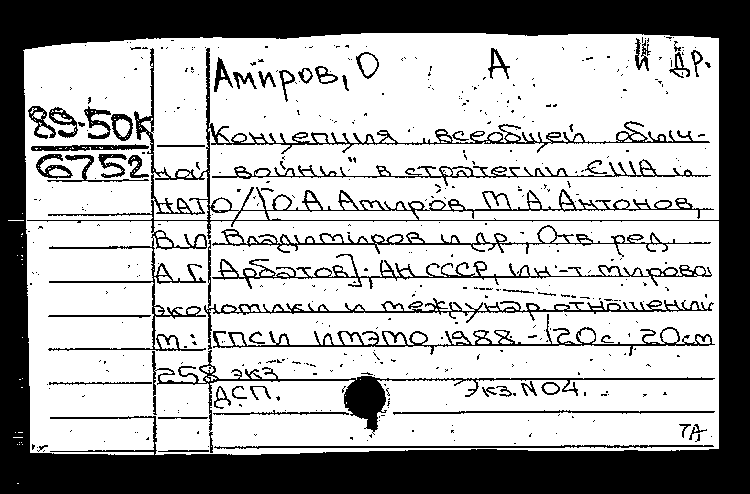 Амиров, О А и др.
89-50К
6752
Концепция „всеобщей обыч-
ной войны" в стратегии США и
НАТО/[О.А. Амиров, М.А. Антонов,
В.И Владимиров и др; Отв. ред.
А.Г. Арбатов]; АН СССР, Ин-т мирово
экономики и междунар отношений
М.: ГПСИ ИМЭМО, 1988.- 120с.; 20см
258 экз
ДСП. Экз.N04.
ТА